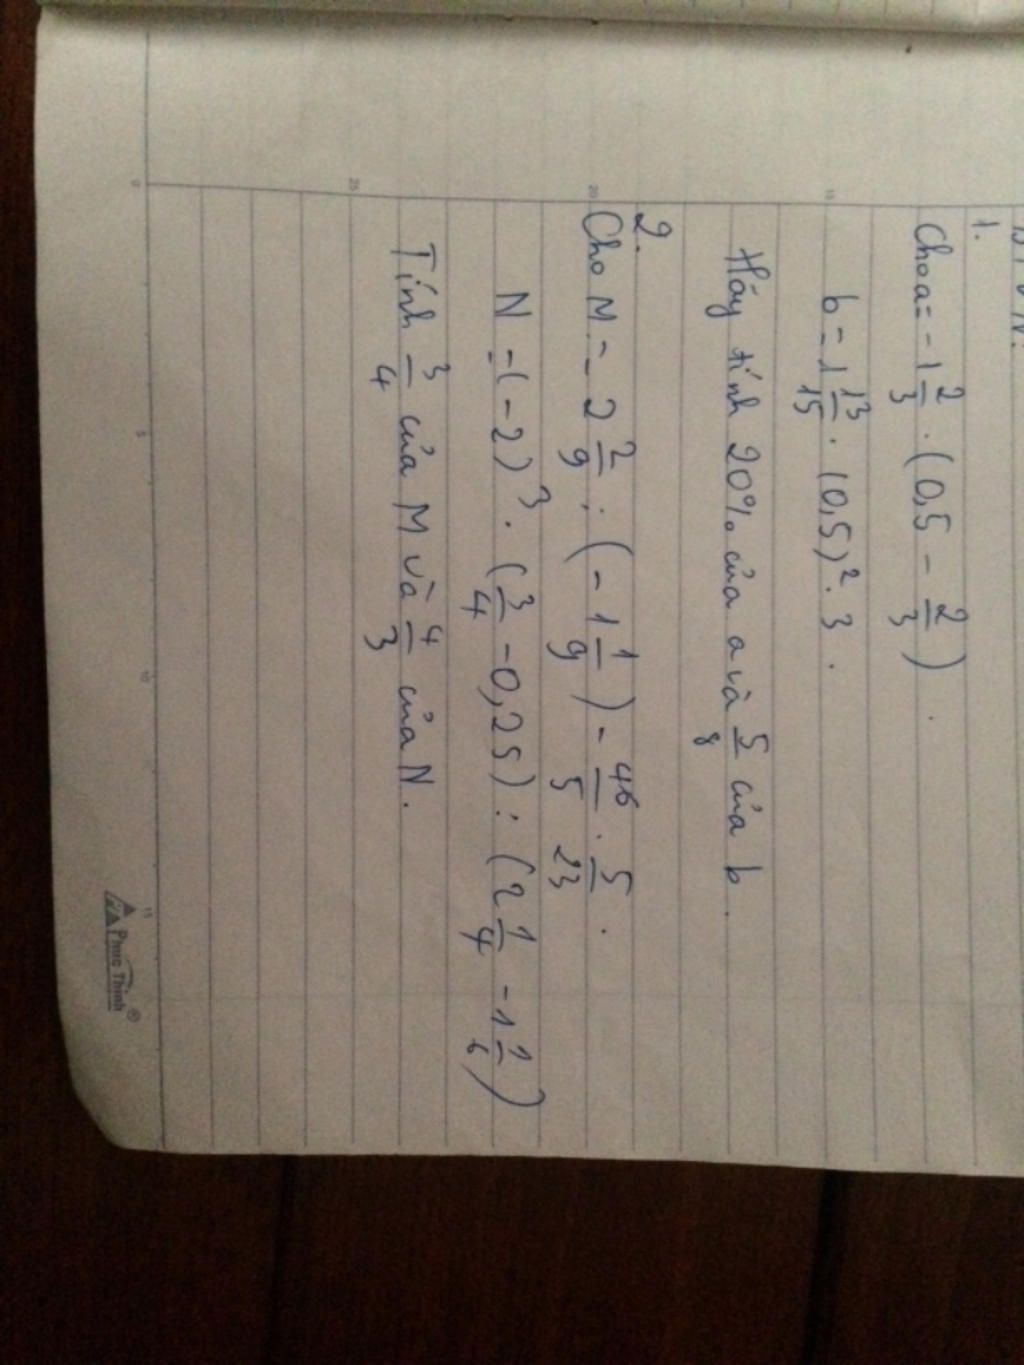 1.
Cho a = - 1 2/3 . (0,5 - 2/3) .
b = 1 13/15 . (0,5)² . 3 .
Hãy tính 20% của a và 5/8 của b .
2.
Cho M = 2 2/9 : (- 1 1/9) - 46/5 . 5/23 .
N = (-2)³ . (3/4 - 0,25) : (2 1/4 - 1 1/6)
Tính 3/4 của M và 4/3 của N .
15
20
25
0
5
10
15
Phuc Thinh ®